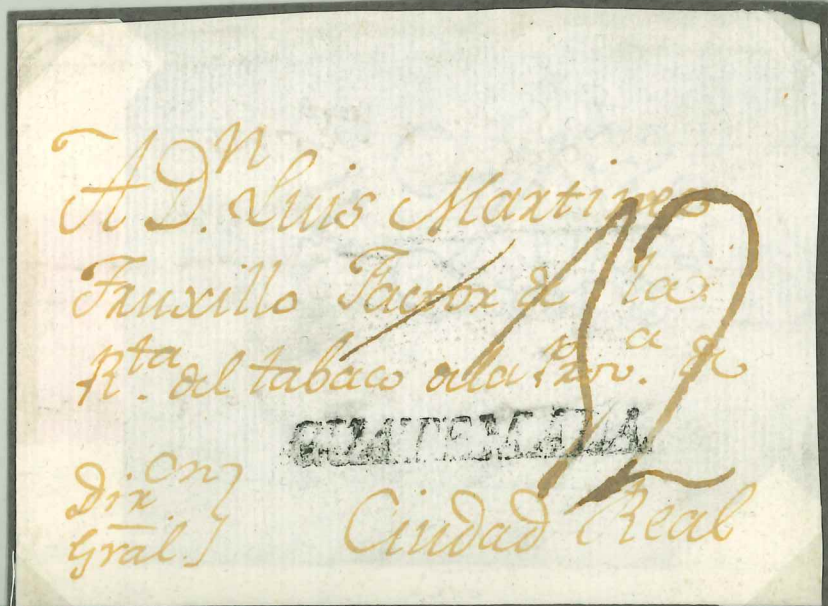 A D.ⁿ Luis Martinez
Truxillo Factor de la
R.ᵗᵃ del tabaco de la Prov.ᵃ de
GUATEMALA
12
Dir.ᵒⁿ
Gräl.
Ciudad Real